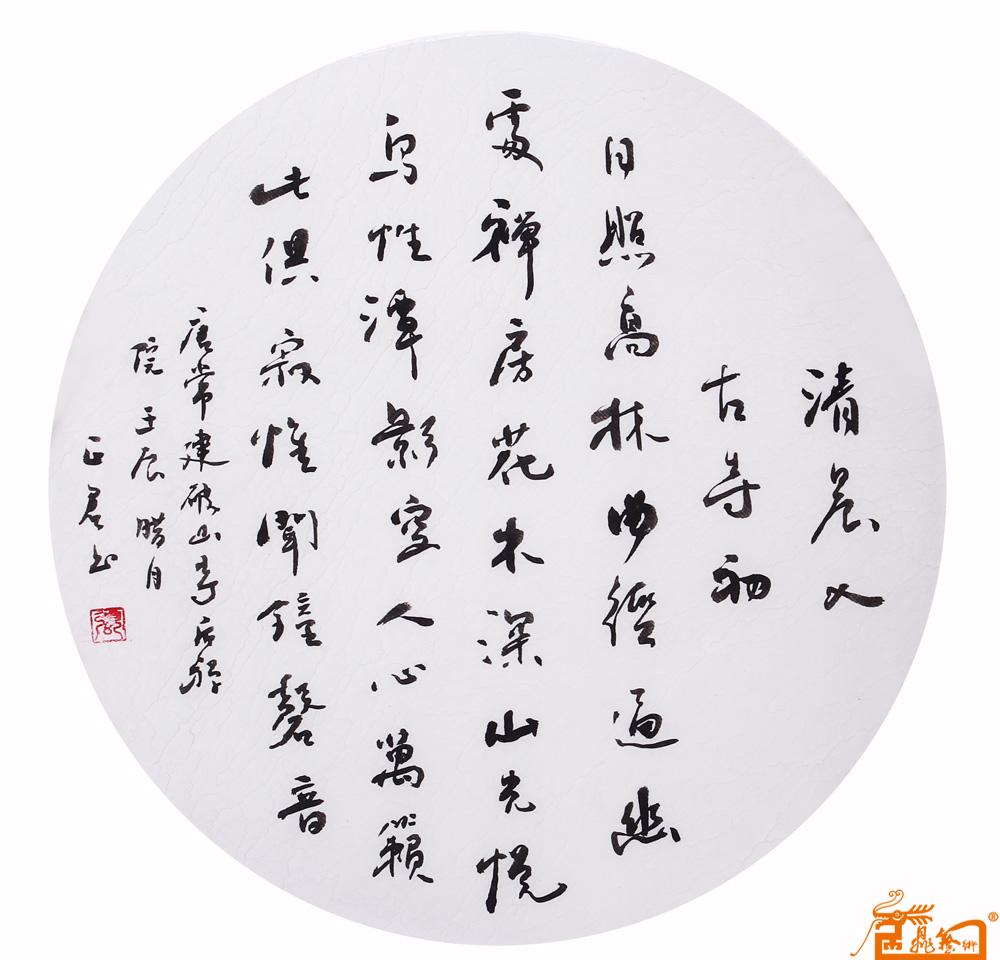 清晨入
古寺初
日照高林曲徑通幽
處禪房花木深山光悦
鸟性潭影空人心萬籟
此俱寂惟聞鐘磬音
唐常建破山寺后禅
院壬辰腊月
正君书